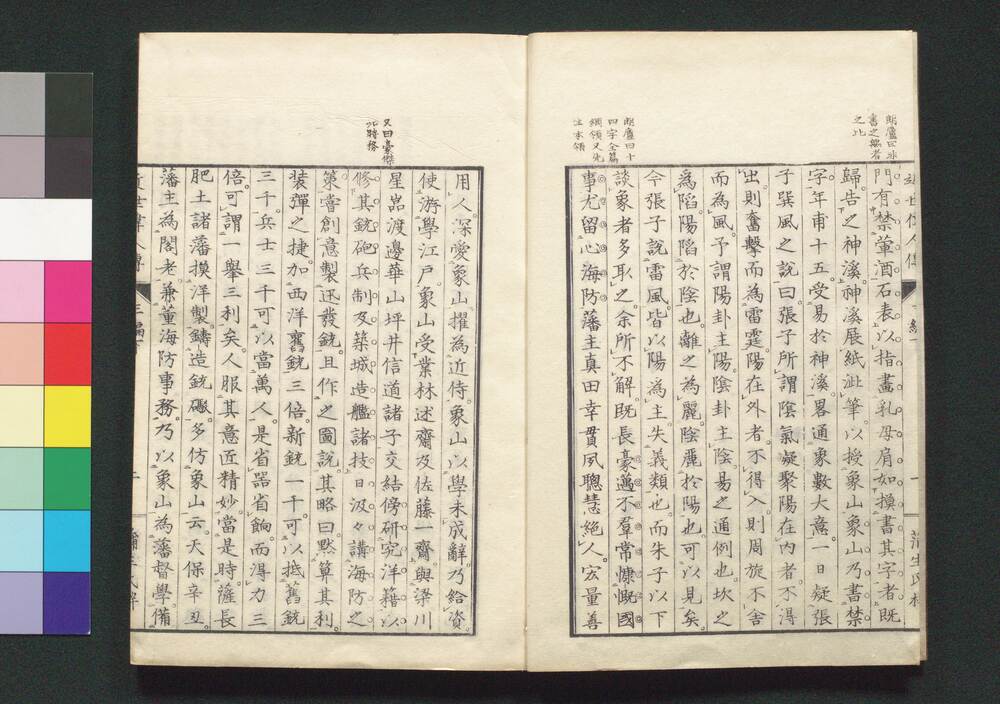 朗廬曰氷
書之編者
之比
門有禁葷酒石表以指畫乳母肩如摸書其字者既
歸告之神溪神溪展紙泚筆以授象山象山乃書禁
字年甫十五受易於神溪畧通象數大意一日疑張
子巽風之說曰張子所謂陰氣凝聚陽在內者不得
出則奮擊而為雷霆陽在外者不得入則周旋不舍
而為風予謂陽卦主陽陰卦主陰易之通例也坎之
為陷陽陷於陰也離之為麗陰麗於陽也可以見矣
今張子說雷風皆以陽為主失義類也而朱子以下
談象者多取之余所不解既長豪邁不羣常慷慨國
事尤留心海防藩主真田幸貫夙聰慧絕人宏量善
朗廬曰十
四字全篇
綱領又先
生本領
用人深愛象山擢為近侍象山以學未成辭乃給資
使游學江戶象山受業林述齋及佐藤一齋與梁川
星巖渡邊華山坪井信道諸子交結傍研究洋籍以
修其銃砲兵制及築城造艦諸技日汲々講海防之
策嘗創意製迅發銃且作之圖說其略曰默算其利
裝彈之捷加西洋舊銃三倍新銃一千可以抵舊銃
三千兵士三千可以當萬人是省器省餉而得力三
倍可謂一舉三利矣人服其意匠精妙當是時薩長
肥土諸藩摸洋製鑄造銃礮多仿象山云天保辛丑
藩主為閣老兼董海防事務乃以象山為藩督學備
又曰豪傑
必勝務